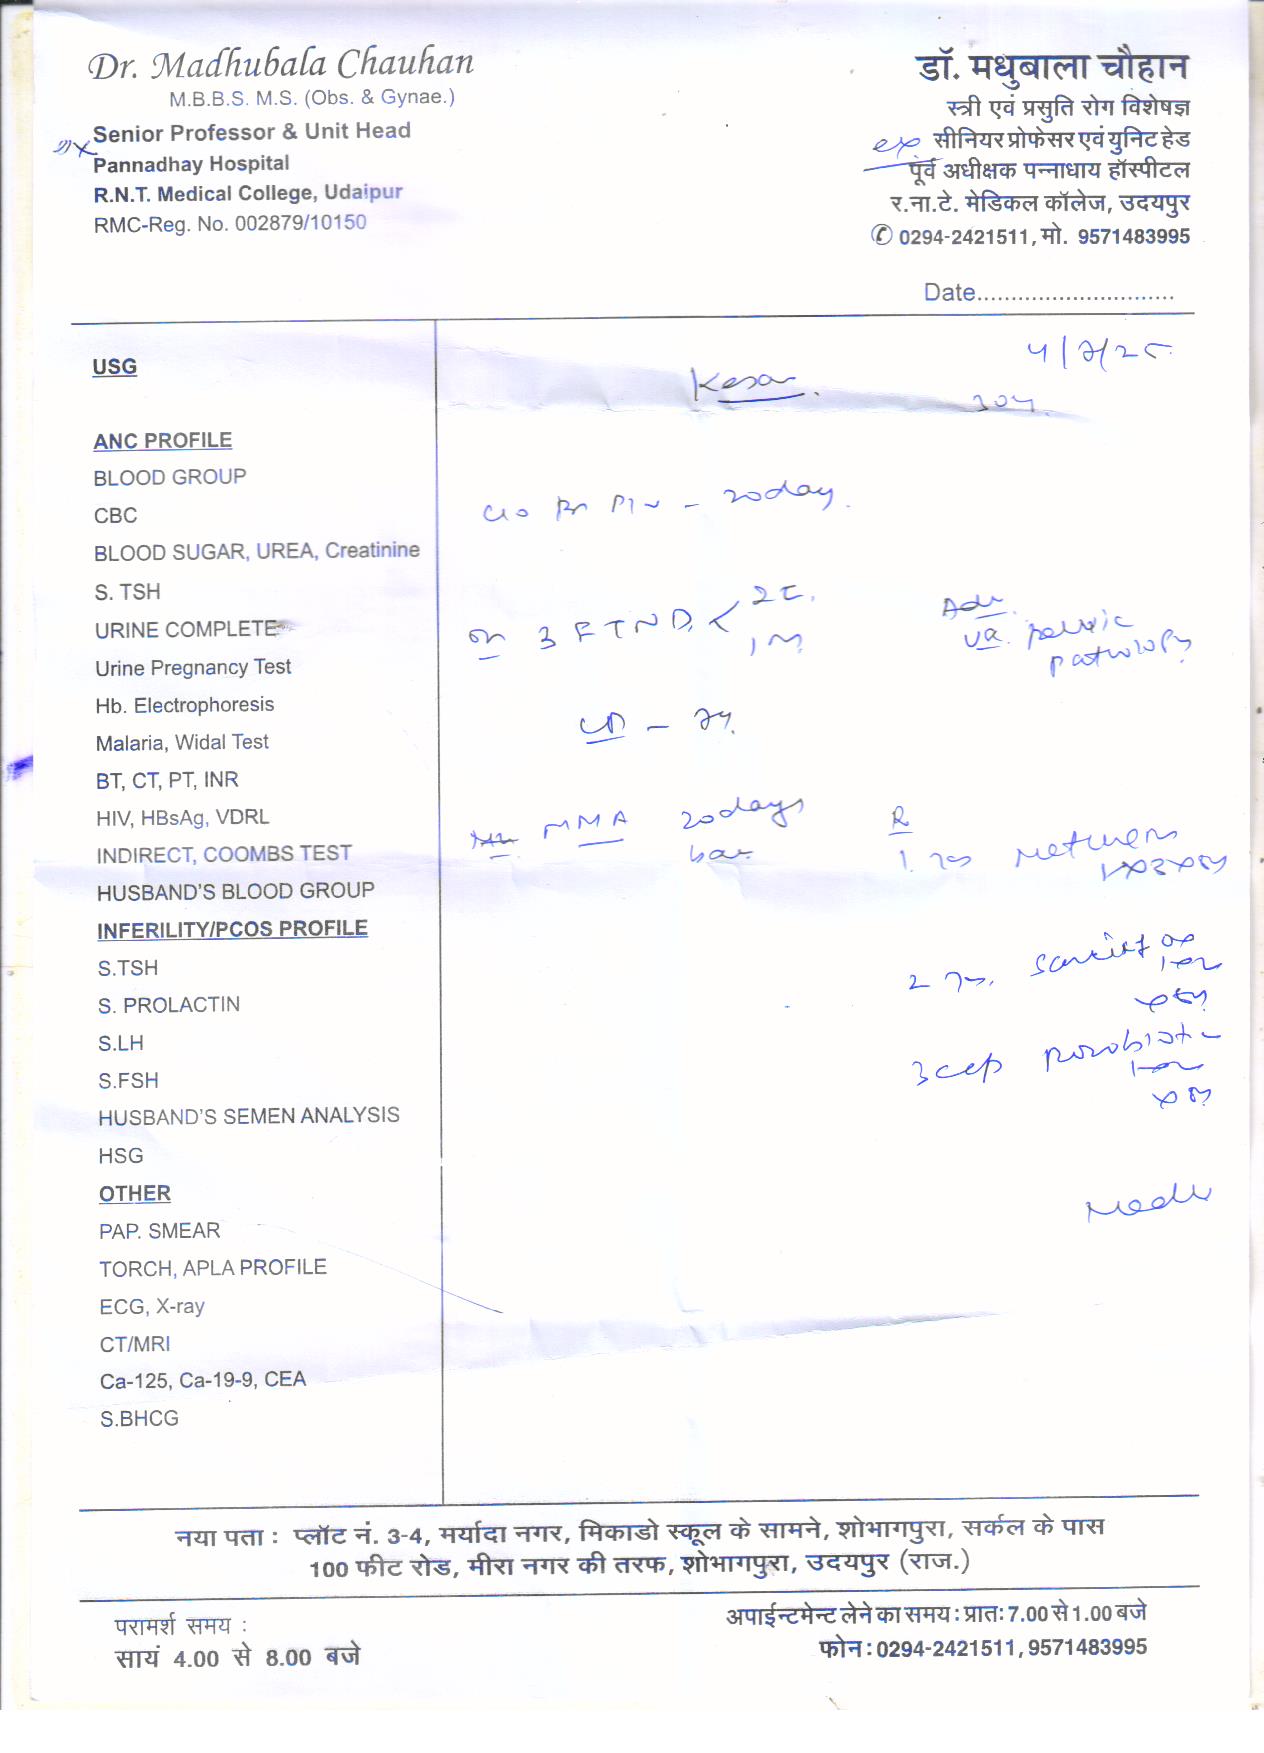 Dr. Madhubala Chauhan
M.B.B.S. M.S. (Obs. & Gynae.)
Senior Professor & Unit Head
Pannadhay Hospital
R.N.T. Medical College, Udaipur
RMC-Reg. No. 002879/10150
डॉ. मधुबाला चौहान
स्त्री एवं प्रसुति रोग विशेषज्ञ
ex. सीनियर प्रोफेसर एवं युनिट हेड
पूर्व अधीक्षक पन्नाधाय हॉस्पीटल
र.ना.टे. मेडिकल कॉलेज, उदयपुर
✆ 0294-2421511, मो. 9571483995
Date.............................
USG
ANC PROFILE
BLOOD GROUP
CBC
BLOOD SUGAR, UREA, Creatinine
S. TSH
URINE COMPLETE
Urine Pregnancy Test
Hb. Electrophoresis
Malaria, Widal Test
BT, CT, PT, INR
HIV, HBsAg, VDRL
INDIRECT, COOMBS TEST
HUSBAND'S BLOOD GROUP
INFERILITY/PCOS PROFILE
S.TSH
S. PROLACTIN
S.LH
S.FSH
HUSBAND'S SEMEN ANALYSIS
HSG
OTHER
PAP. SMEAR
TORCH, APLA PROFILE
ECG, X-ray
CT/MRI
Ca-125, Ca-19-9, CEA
S.BHCG
Kesar
20day
3 FTND
Adv.
pelvic
pathology
MMA 20days
R
1.
2
3 cap
नया पता : प्लॉट नं. 3-4, मर्यादा नगर, मिकाडो स्कूल के सामने, शोभागपुरा, सर्कल के पास
100 फीट रोड, मीरा नगर की तरफ, शोभागपुरा, उदयपुर (राज.)
परामर्श समय :
सायं 4.00 से 8.00 बजे
अपाईन्टमेन्ट लेने का समय : प्रातः 7.00 से 1.00 बजे
फोन : 0294-2421511, 9571483995